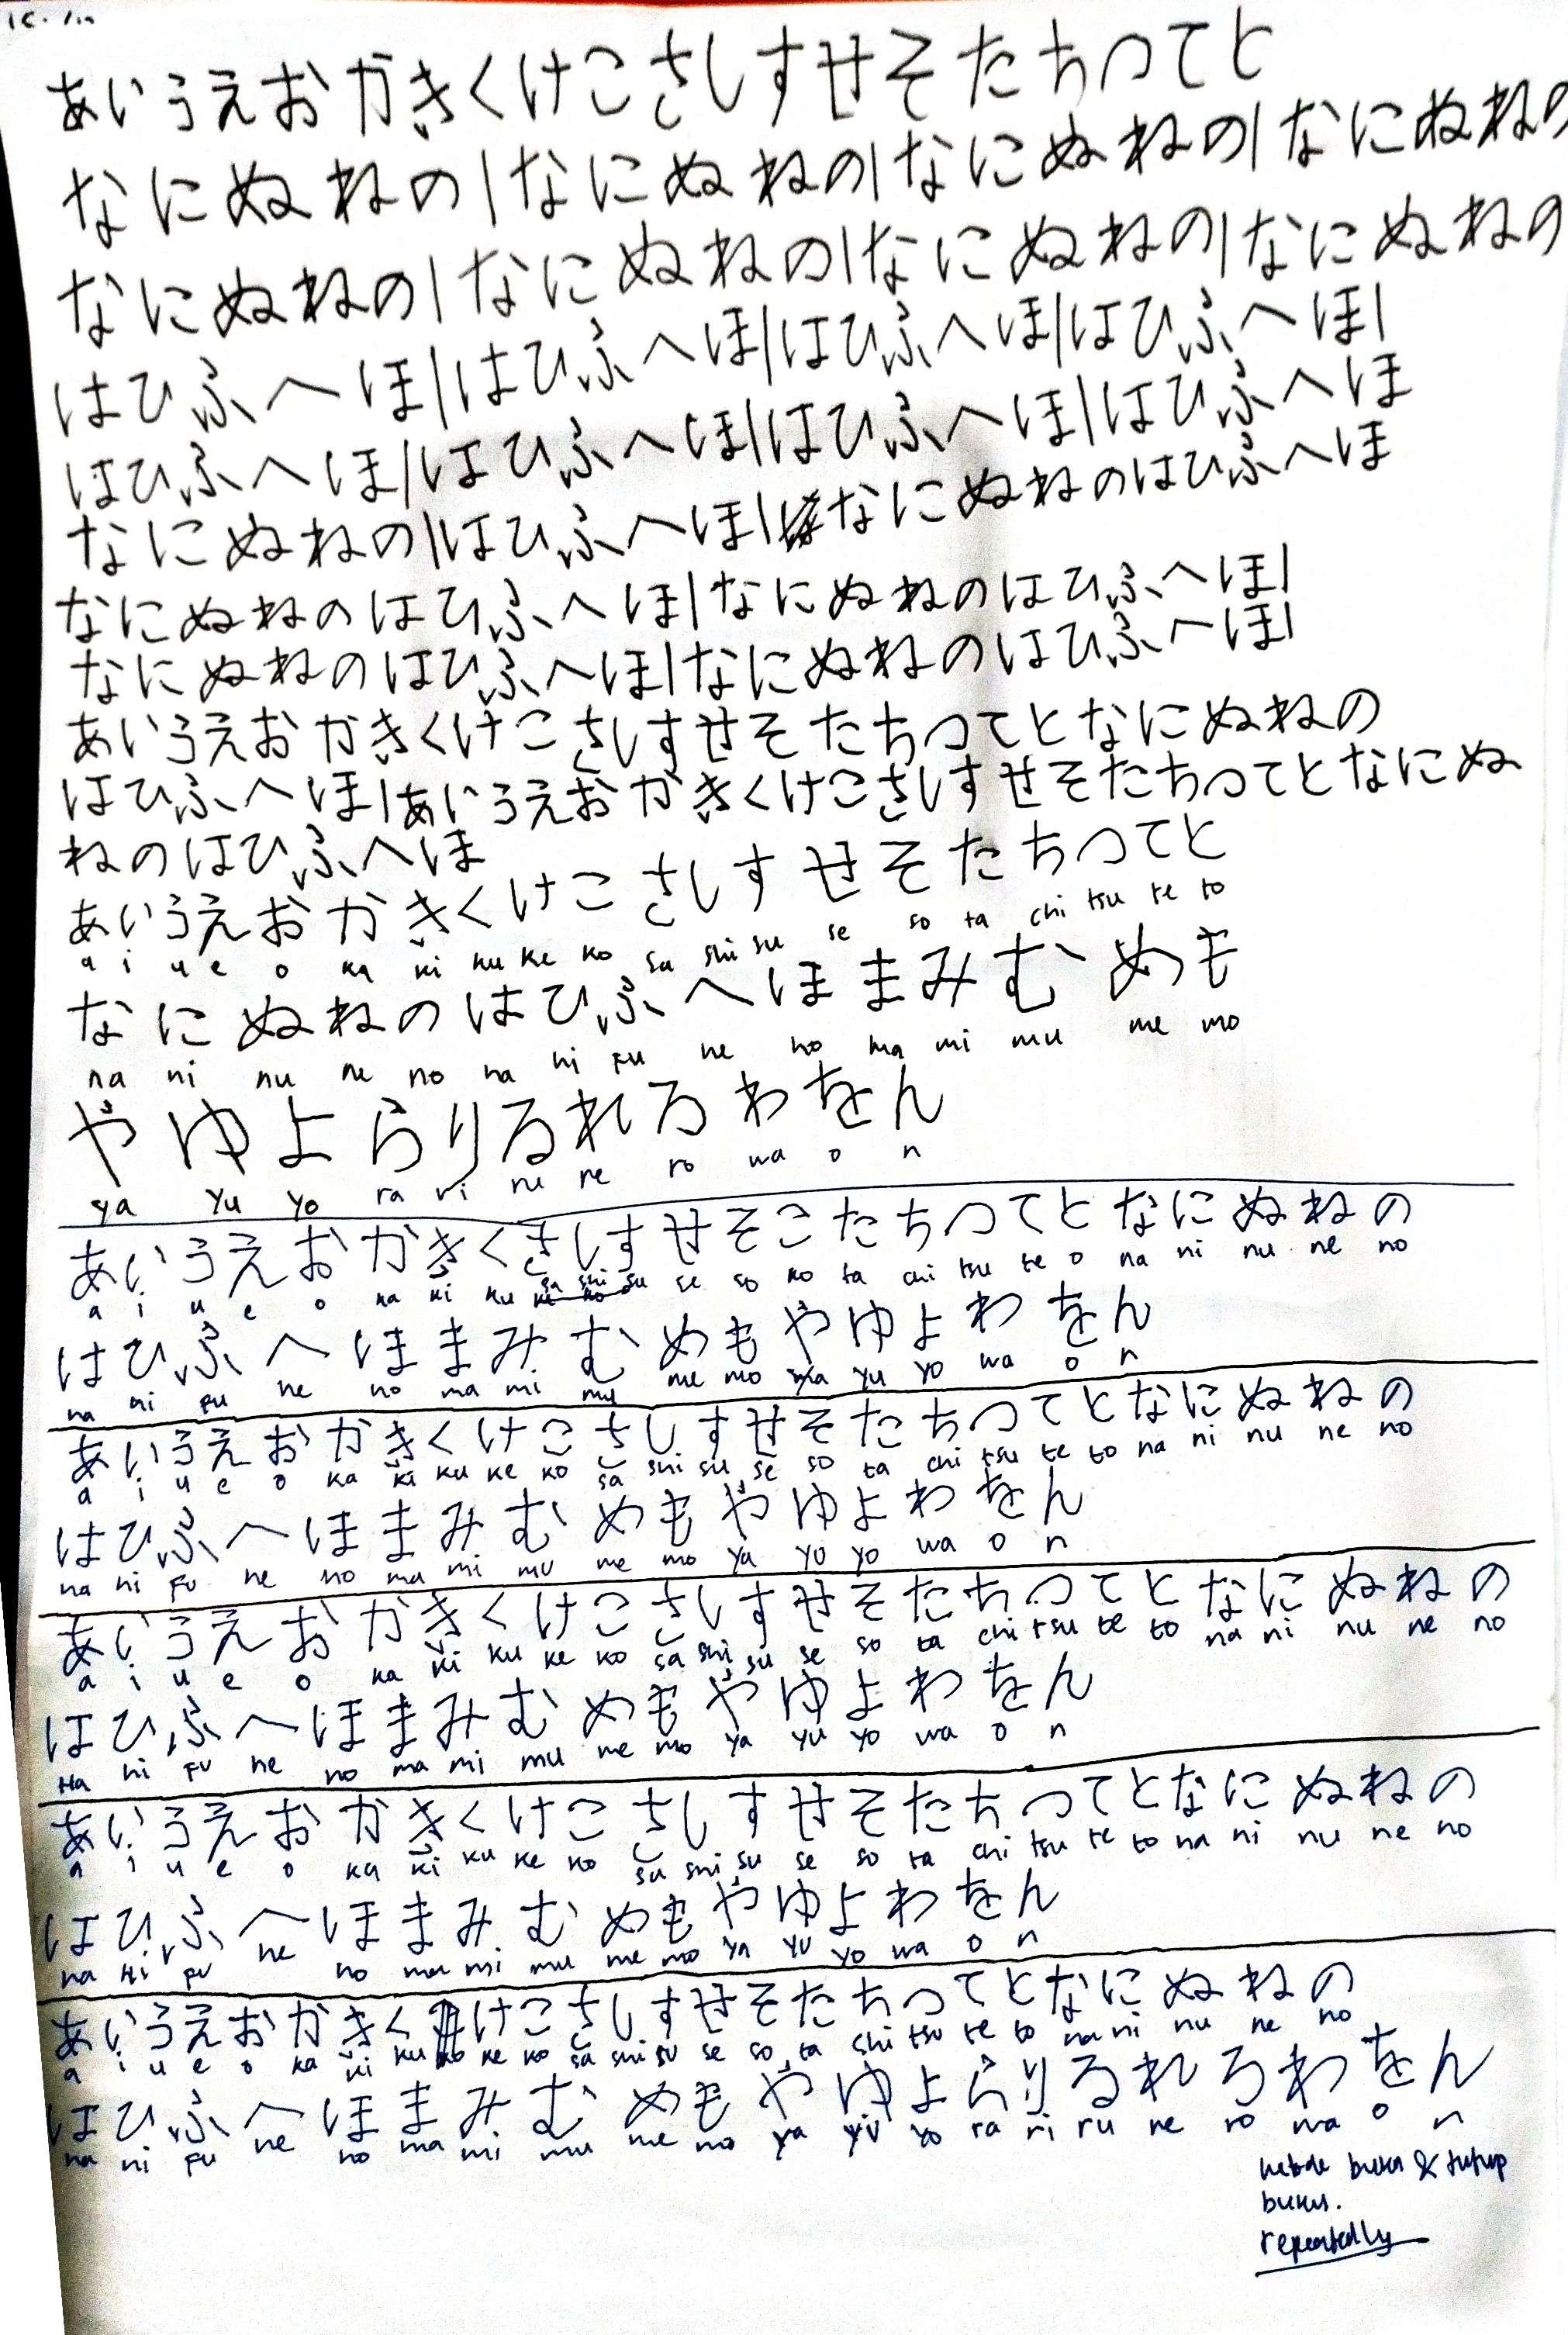 あいうえおかきくけこさしすせそたちつてと
なにぬねの|なにぬねの|なにぬねの|なにぬねの
なにぬねの|なにぬねの|なにぬねの|なにぬねの
はひふへほ|はひふへほ|はひふへほ|はひふへほ|
はひふへほ|はひふへほ|はひふへほ|はひふへほ
なにぬねの|はひふへほ|なにぬねのはひふへほ
なにぬねのはひふへほ|なにぬねのはひふへほ|
なにぬねのはひふへほ|なにぬねのはひふへほ|
あいうえおかきくけこさしすせそたちつてとなにぬねの
はひふへほ|あいうえおかきくけこさしすせそたちつてとなにぬ
ねのはひふへほ
あいうえおかきくけこさしすせそたちつてと
a i u e o ka ki ku ke ko sa shi su se so ta chi tsu te to
なにぬねのはひふへほまみむめも
na ni nu ne no ha hi fu he ho ma mi mu me mo
やゆよらりるれろわをん
ya yu yo ra ri ru re ro wa o n
あいうえおかきくさしすせそこたちつてとなにぬねの
a i u e o ka ki ku sa shi su se so ko ta chi tsu te o na ni nu ne no
はひふへほまみむめもやゆよわをん
ha hi fu he ho ma mi mu me mo ya yu yo wa o n
あいうえおかきくけこさしすせそたちつてとなにぬねの
a i u e o ka ki ku ke ko sa shi su se so ta chi tsu te to na ni nu ne no
はひふへほまみむめもやゆよわをん
ha hi fu he ho ma mi mu me mo ya yu yo wa o n
あいうえおかきくけこさしすせそたちつてとなにぬねの
a i u e o ka ki ku ke ko sa shi su se so ta chi tsu te to na ni nu ne no
はひふへほまみむめもやゆよわをん
Ha hi fu he ho ma mi mu me mo ya yu yo wa o n
あいうえおかきくけこさしすせそたちつてとなにぬねの
a i u e o ka ki ku ke ko sa shi su se so ta chi tsu te to na ni nu ne no
はひふへほまみむめもやゆよわをん
ha Hi fu he ho ma mi mu me mo ya yu yo wa o n
あいうえおかきくけこさしすせそたちつてとなにぬねの
a i u e o ka ki ku ke ko sa shi su se so ta chi tsu te to na ni nu ne no
はひふへほまみむめもやゆよらりるれろわをん
ha hi fu he ho ma mi mu me mo ya yu yo ra ri ru re ro wa o n
buka & tutup
buku.
repeatedly